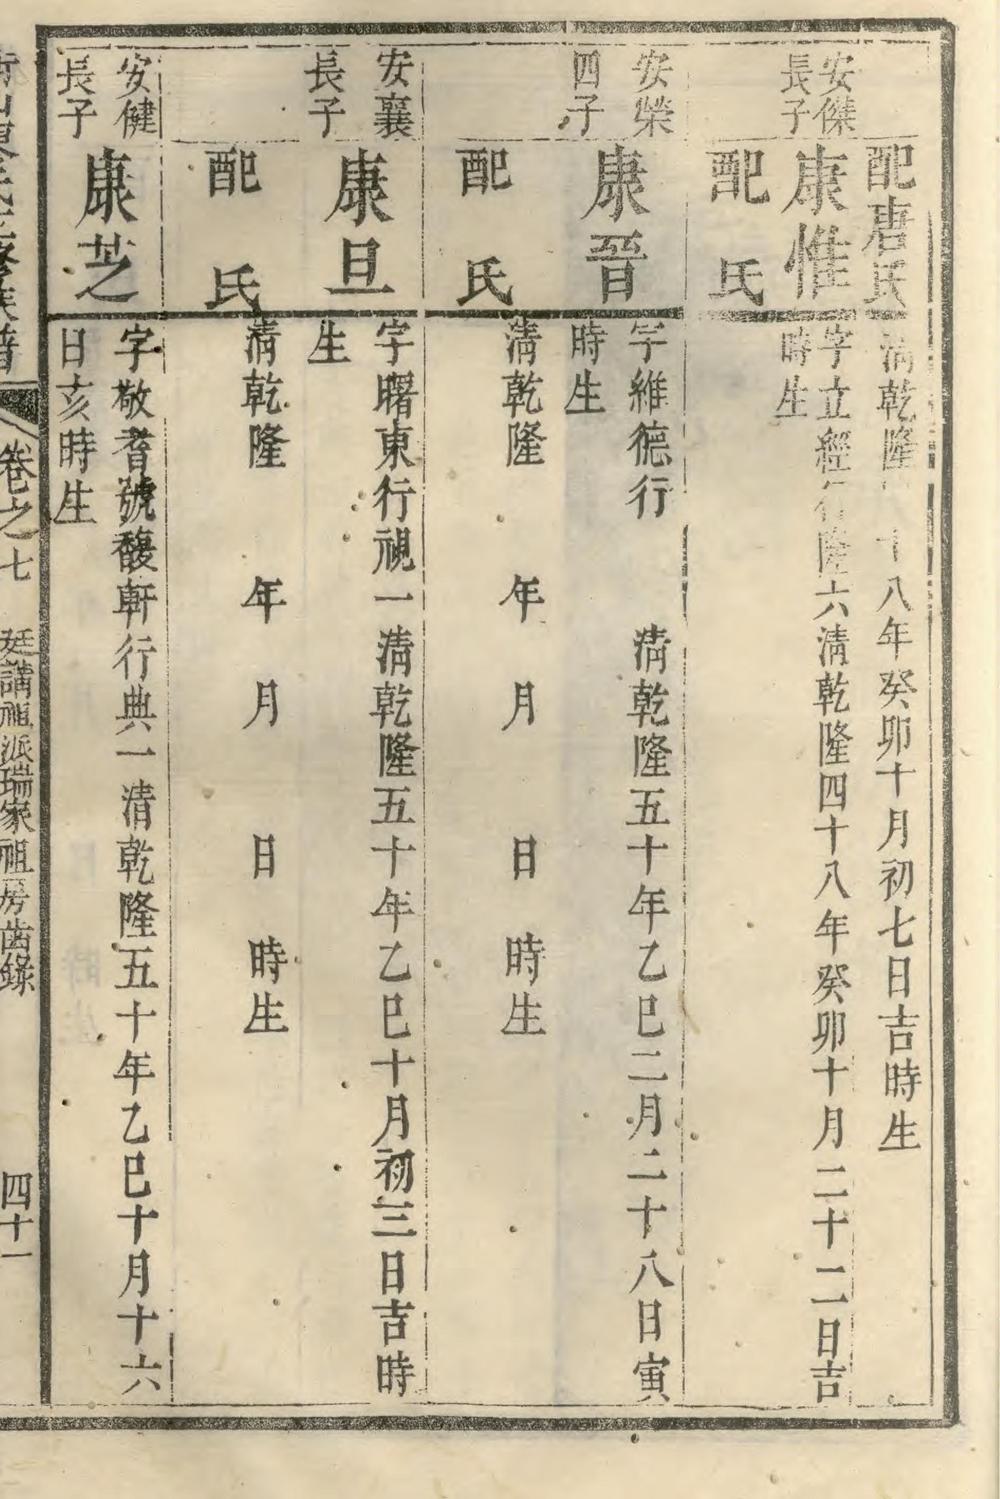 配唐氏
清乾隆四十八年癸卯十月初七日吉時生
安傑
長子
康惟
字立經行隆六清乾隆四十八年癸卯十月二十二日吉
時生
配 氏
安榮
四子
康晉
字維德行 清乾隆五十年乙巳二月二十八日寅
時生
配 氏
清乾隆 年 月 日 時生
安襄
長子
康旦
字曙東行視一清乾隆五十年乙巳十月初三日吉時
生
配 氏
清乾隆 年 月 日 時生
安健
長子
康芝
字敬耆號馥軒行典一清乾隆五十年乙巳十月十六
日亥時生
氏 修族譜
卷之七
廷講祖派瑞家祖房齒錄
四十一